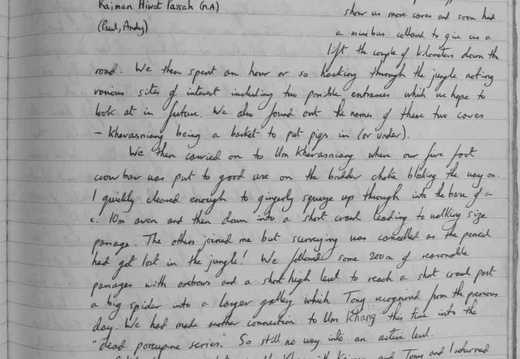 Kaiman Hivot Passah (GA)
(Paul, Andy)
show us more caves and soon had
a minibus collared to give us a
lift the couple of kilometers down the
road. We then spent an hour or so hacking through the jungle noting
various sites of interest including two possible entrances which we hope to
look at in future. We also found out the names of these two caves
– Kherasniang being a basket to put pigs in (or under).
We then carried on to Um Kherasniang where our five foot
crowbar was put to good use on the boulder choke blocking the way on.
I quickly cleared enough to gingerly squeeze up through into the base of a
c. 10m aven and then down into a short crawl leading to walking size
passage. The others joined me but surveying was cancelled as the pencil
had got lost in the jungle! We followed some 200m of reasonable
passages with oxbows and a short high level to reach a short crawl past
a big spider into a larger gallery which Tony recognised from the previous
day. We had made another connection to Um Khang this time into the
"dead porcupine series". So still no way into an active level.
Kaiman and Tony and I returned